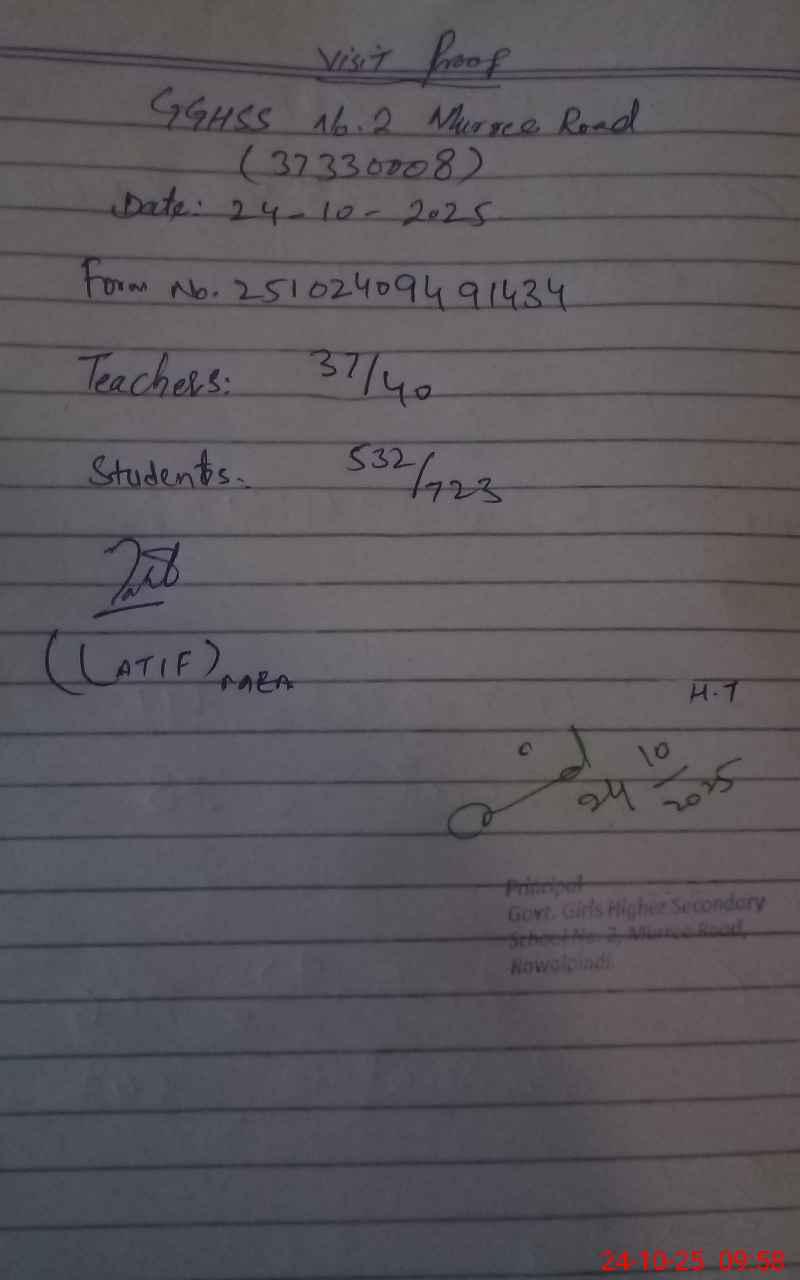 Visit Proof
GGHSS No. 2 Murree Road
(37330008)
Date: 24-10-2025
Form No. 25102409491434
Teachers: 37/40
Students. 532/723
(LATIF)
H.T
24/10/2025
Principal
Govt. Girls Higher Secondary
School No. 2, Murree Road,
Rawalpindi.
24-10-25 09:58